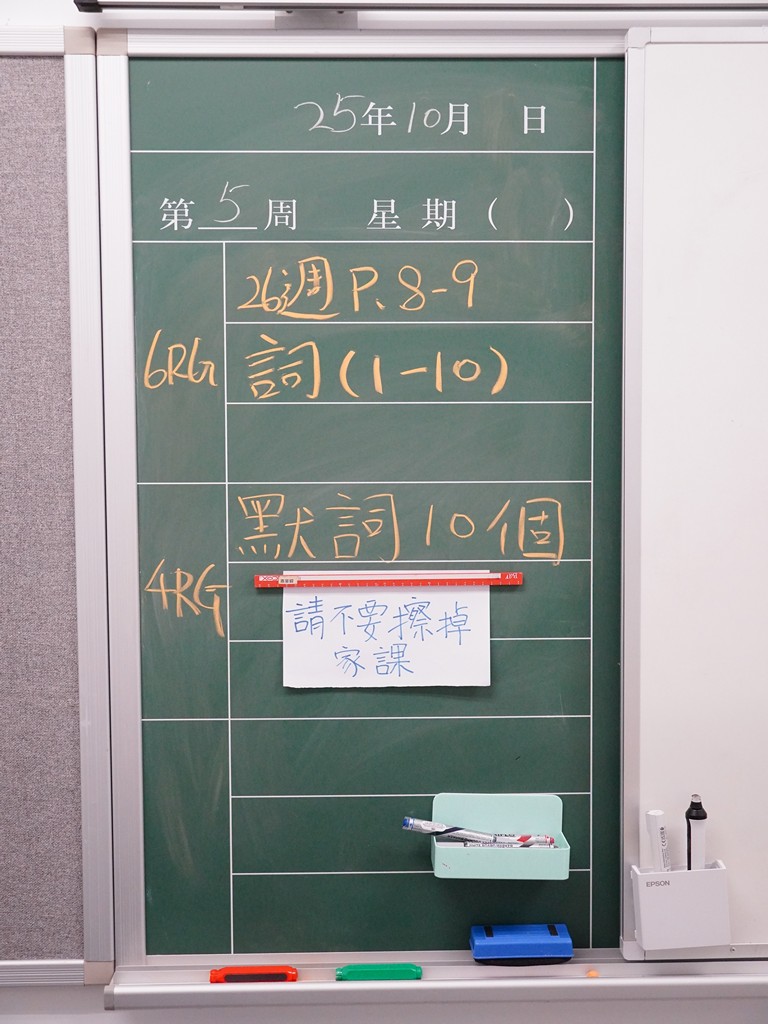 25年10月 日
第5周 星期( )
6RG
26週 P. 8-9
詞(1-10)
4RG
默詞10個
請不要擦掉
家課
EPSON